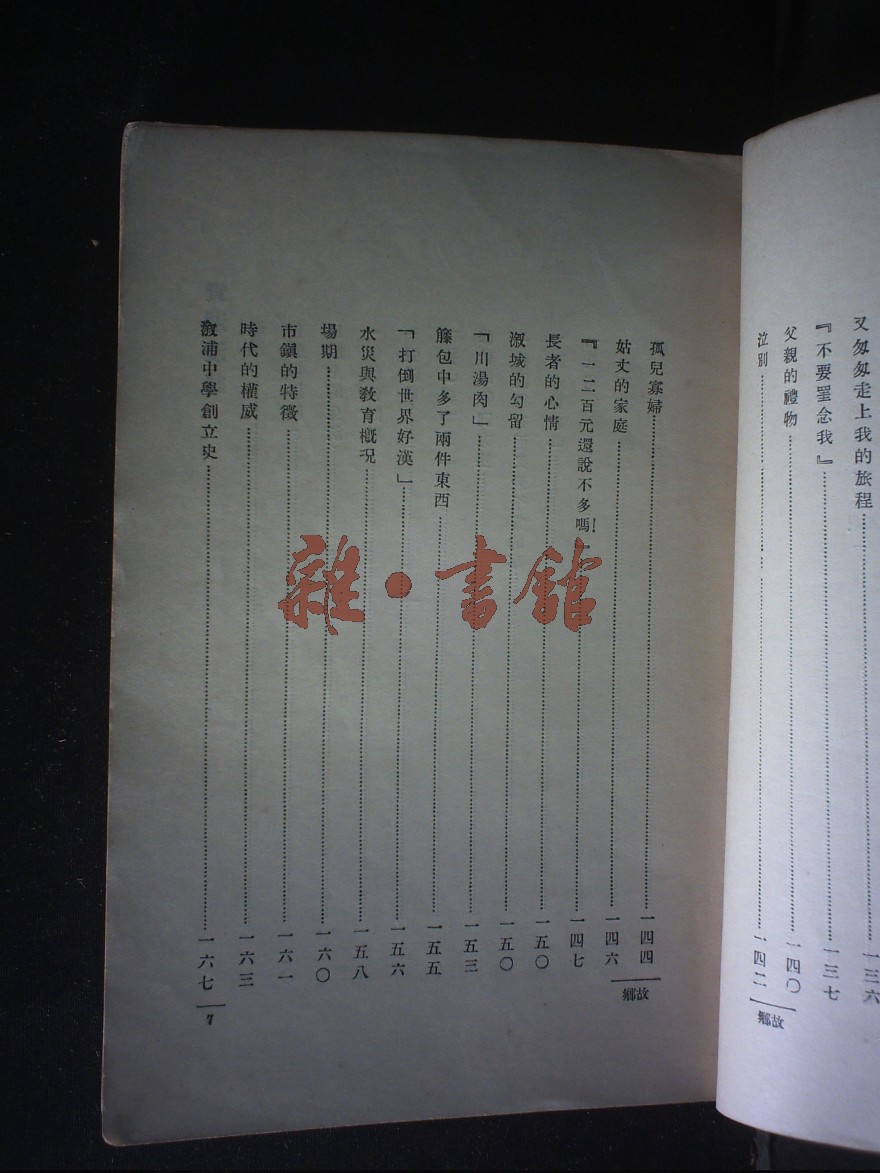 又匆匆走上我的旅程……一三六
『不要罣念我』……一三七
父親的禮物……一四〇
泣別……一四二
故鄉
孤兒寡婦……一四四
姑丈的家庭……一四六
『一二百元還說不多嗎！……一四七
長者的心情……一五〇
溆城的勾留……一五〇
「川湯肉」……一五三
籐包中多了兩件東西……一五五
「打倒世界好漢」……一五六
水災與教育概況……一五八
場期……一六〇
市鎮的特徵……一六一
時代的權威……一六三
溆浦中學創立史……一六七
故鄉
7
雜·書館